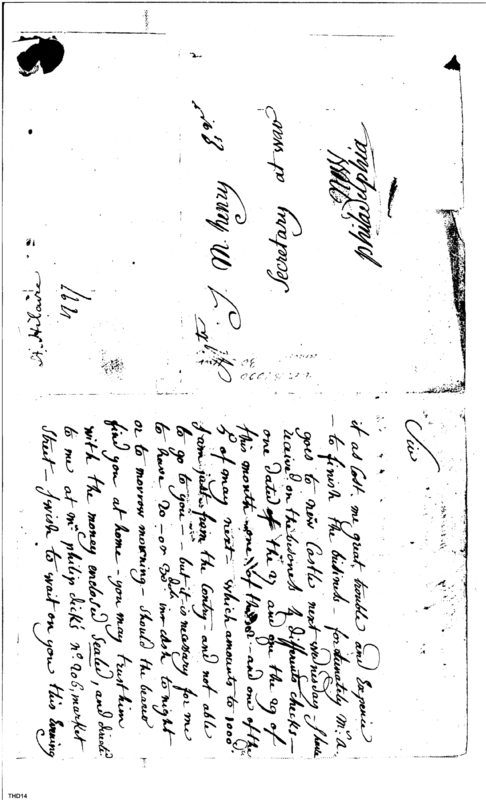 Philadelphia
Secretary at war
M. Henry Esqr
1797
Sir
it as Cost me great trouble and Expence
- to finish the business - fordinately Mr. A.
goes to new Castle next wednesday - I have
receive on the business 4 differents checks -
one dated of the 27 and one the 29 of
this month and one of the
5 of may next - which amounts to 1000 Ds.
I am just from the Contry and not able
to go to you - but it is nessary for me
to have 20 - or 30 Ds in cash to night
or to morrow morning - should the bearer
find you at home - you may trust him
with the money enclosed Sealed, and direct
to me at Mr philip dick's no. 206, market
Street - I wish to wait on you this Evening
THD14